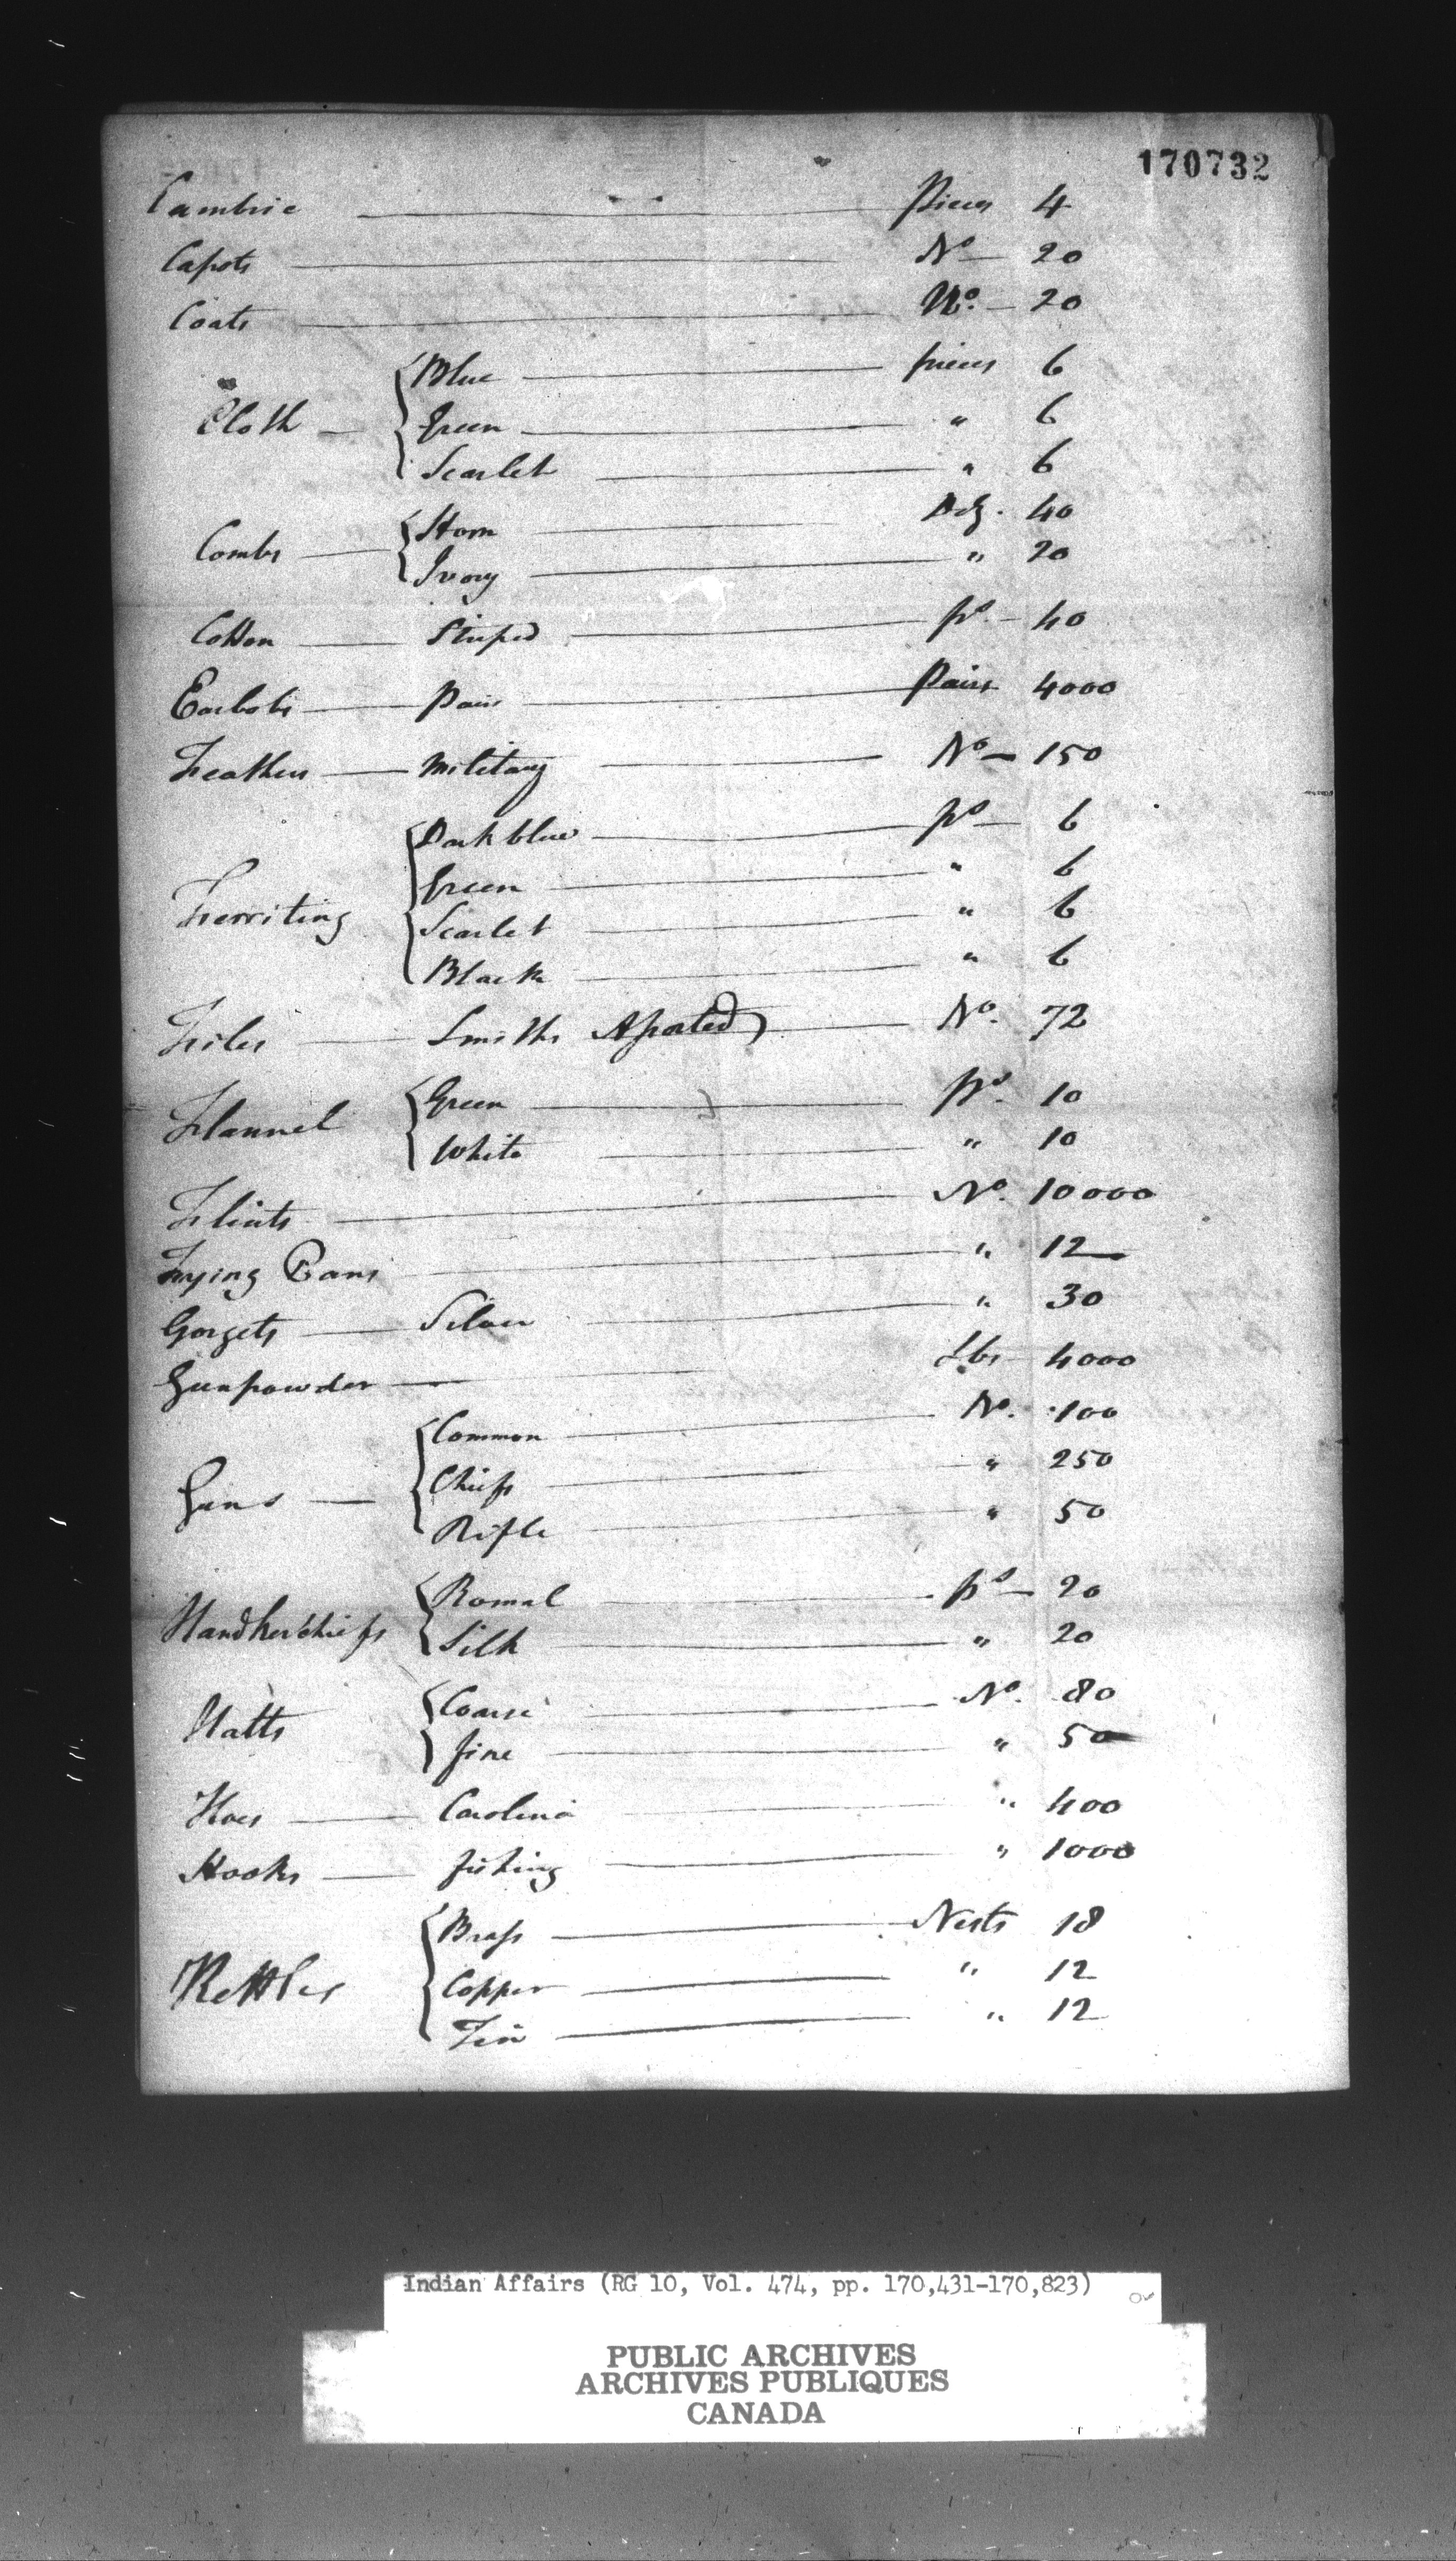 170732
Cambric Pieces 4
Capots No 20
Coats No. 20
Blue pieces 6
Cloth Green " 6
Scarlet " 6
Combs Horn Doz. 40
Ivory " 20
Cotton Striped ps. 40
Earbobs Pairs Pairs 4000
Feathers Military No 150
Dark blue ps 6
Green " 6
Ferriting Scarlet " 6
Black " 6
Files Smiths Assorted No. 72
Flannel Green Ps. 10
White " 10
Flints No. 10000
Frying Pans " 12
Gorgets Silver " 30
Gunpowder Lbs 4000
Common No. 100
Guns Chiefs " 250
Rifle " 50
Handkerchiefs Romal ps 20
Silk " 20
Hatts Coarse No. 80
fine " 50
Hoes Carolina " 400
Hooks fishing " 1000
Brass Nests 18
Kettles Copper " 12
Tin " 12
Indian Affairs (RG 10, Vol. 474, pp. 170,431-170,823)
PUBLIC ARCHIVES
ARCHIVES PUBLIQUES
CANADA